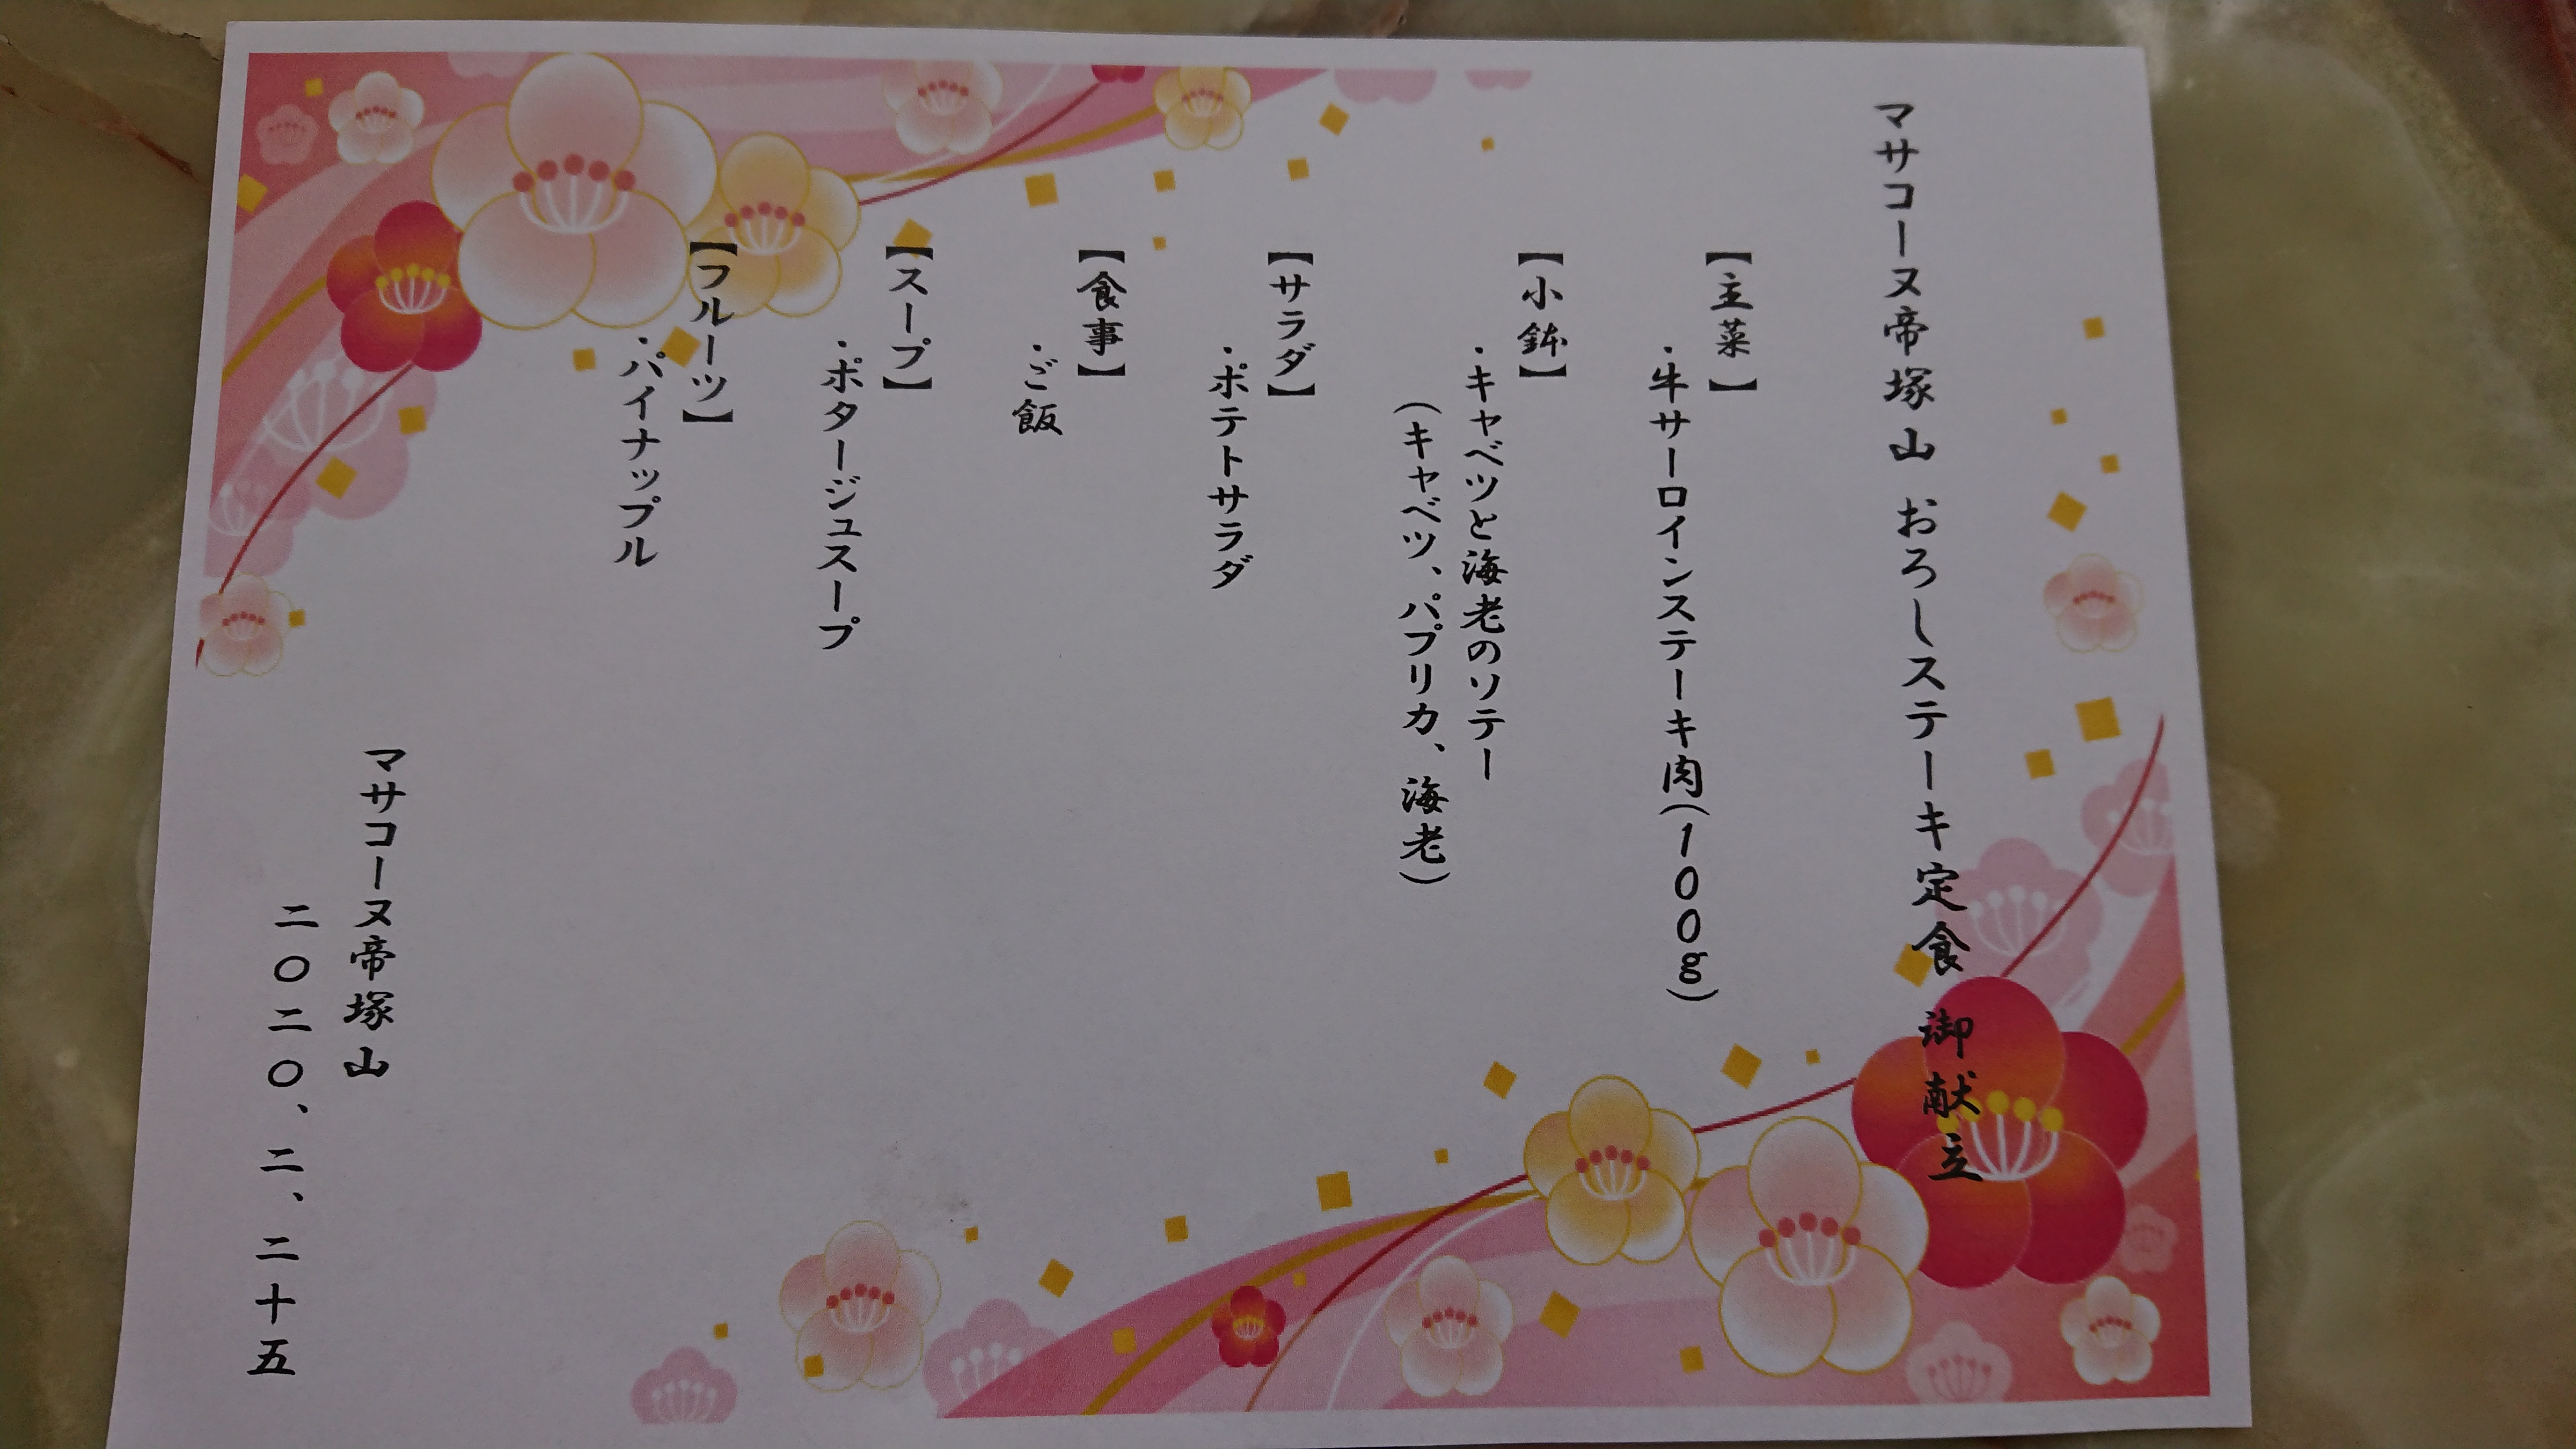 マサコーヌ帝塚山 おろしステーキ定食 御献立
【主菜】
・牛サーロインステーキ肉(100g)
【小鉢】
・キャベツと海老のソテー
(キャベツ、パプリカ、海老)
【サラダ】
・ポテトサラダ
【食事】
・ご飯
【スープ】
・ポタージュスープ
【フルーツ】
・パイナップル
マサコーヌ帝塚山
二〇二〇、二、二十五